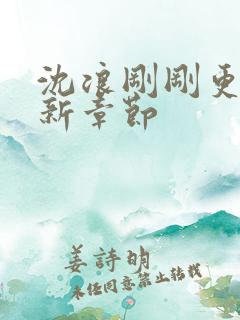 沈浪剛剛更
新章節
姜詩明
未經同意禁止轉載